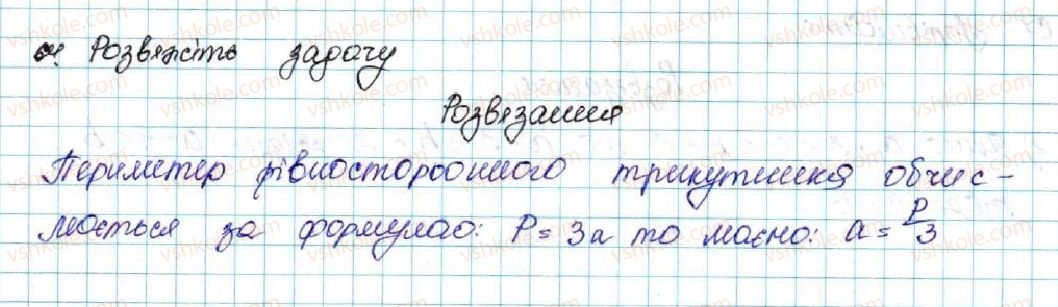 Розвяжіть задачу
Розвязання
Периметр рівностороннього трикутника обчис-
люється за формулою: P = 3a то маємо: a = P/3